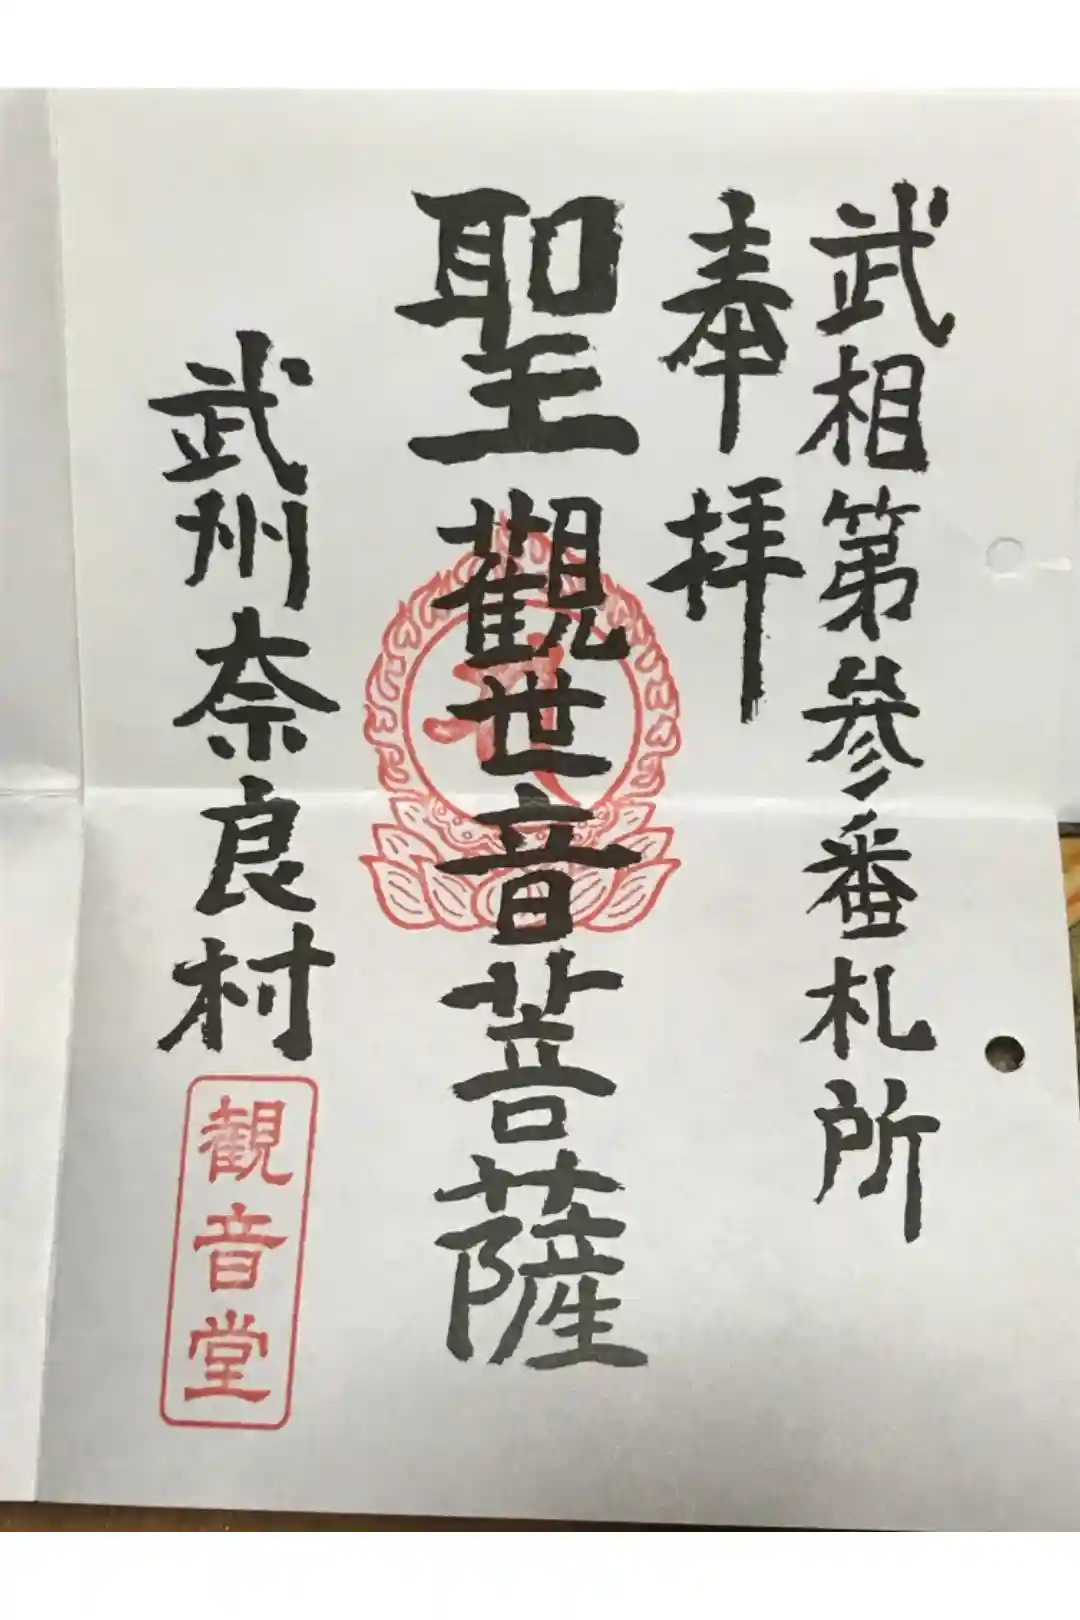 武相第参番札所
奉拝
聖觀世音菩薩
武州奈良村
観音堂